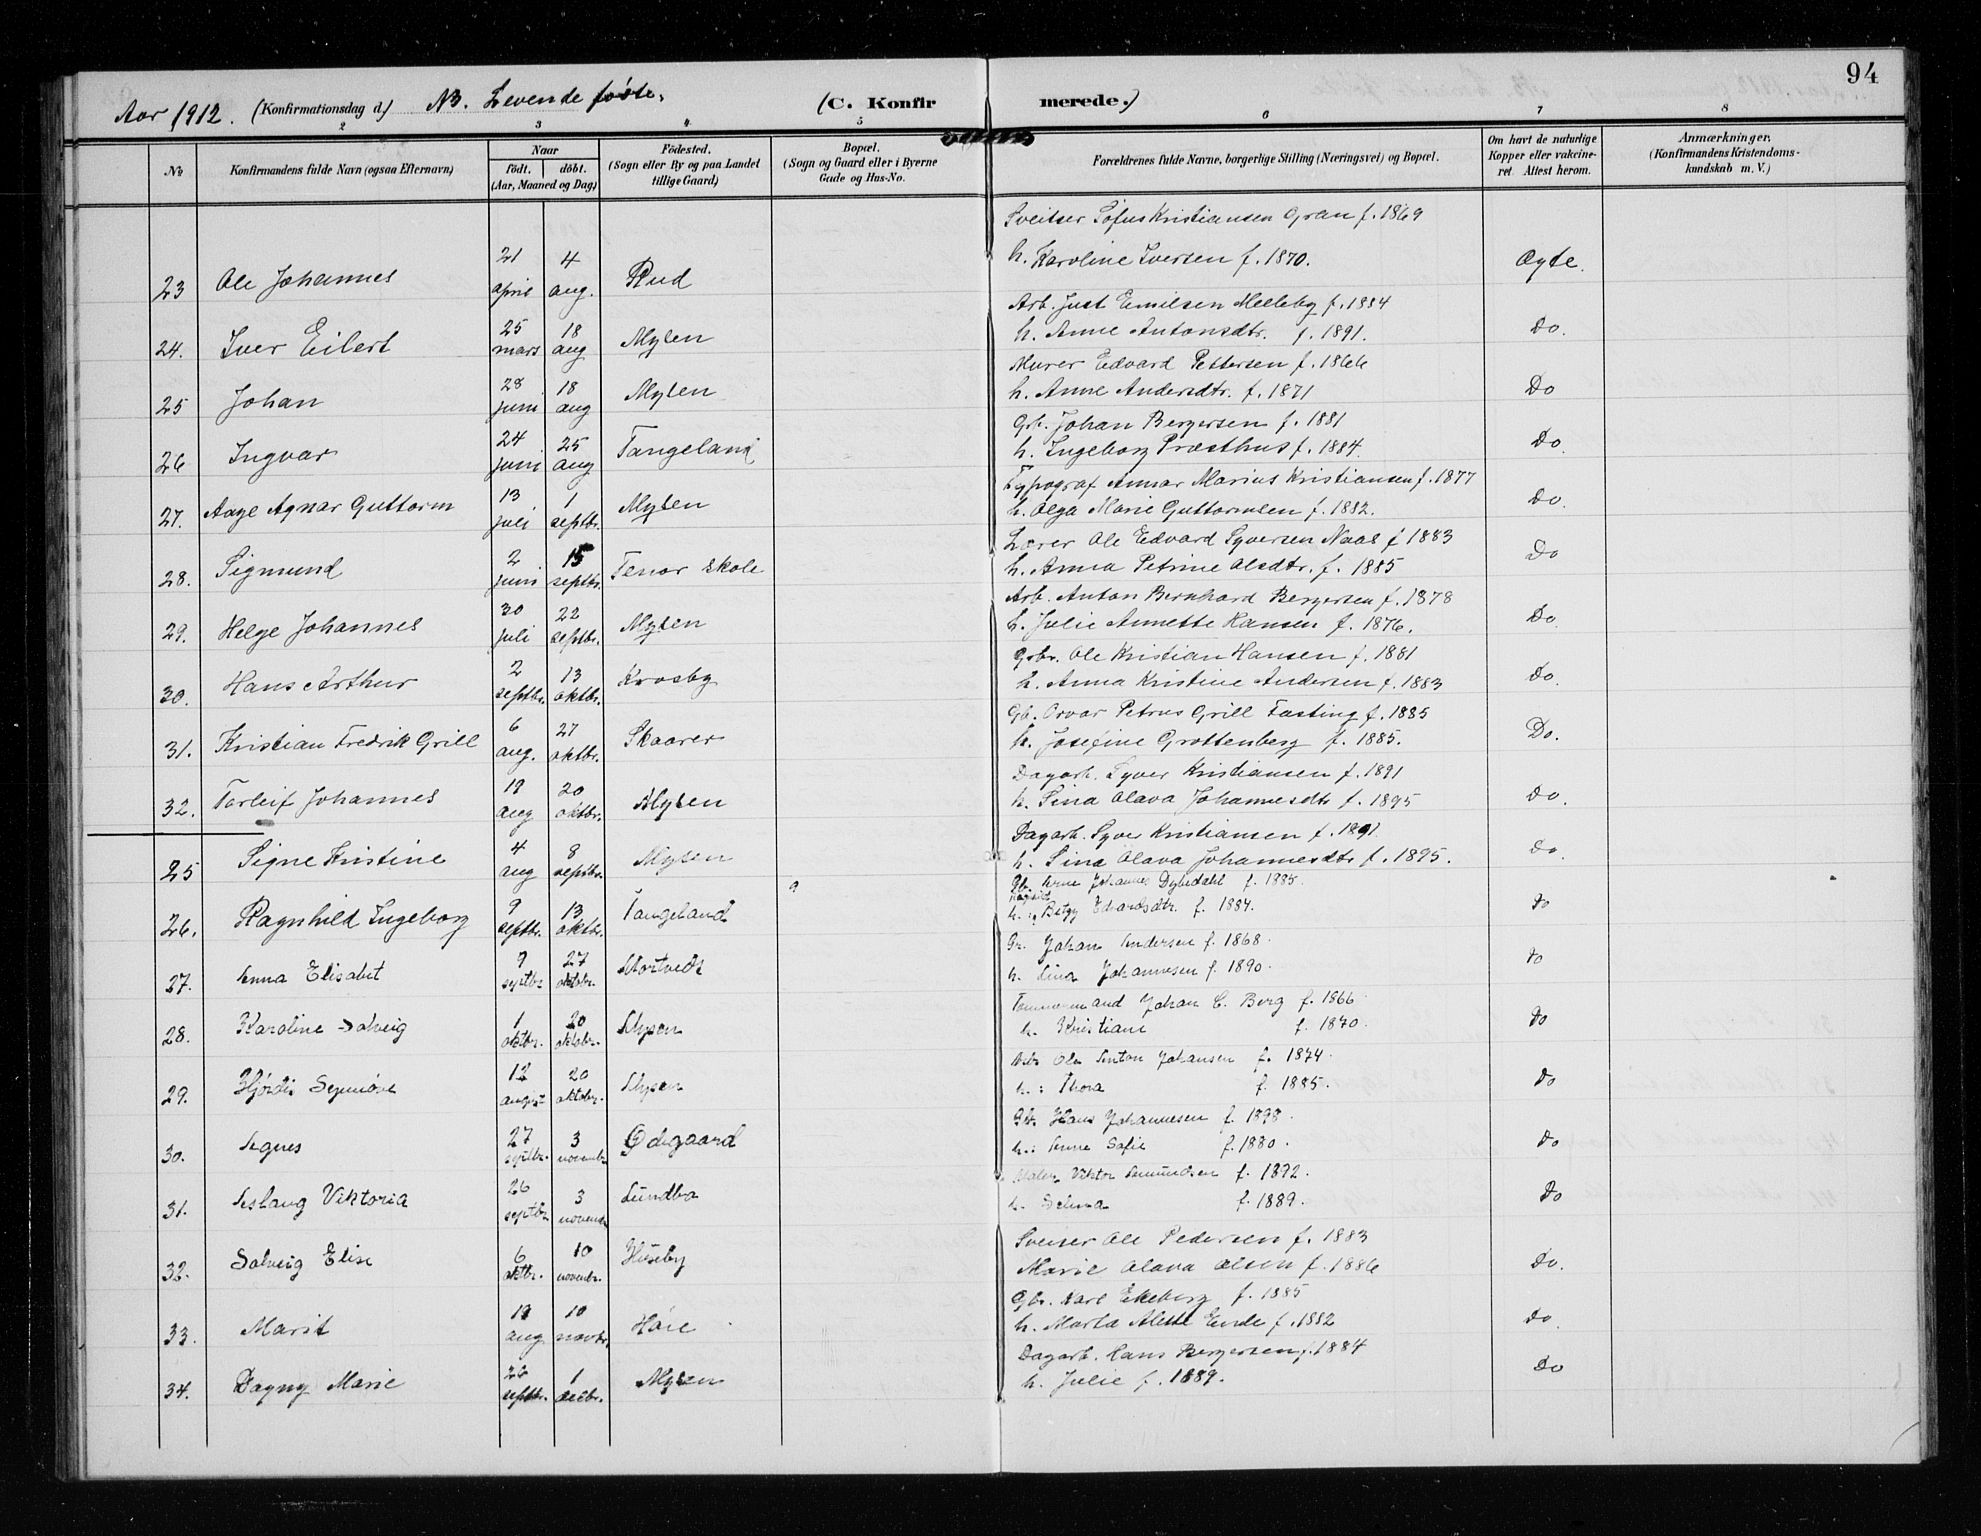 94
Aar 1912. (Konfirmationsdag d.) NB. Levende fødte. (C. Konfirmerede.)
2 3 4 5 6 7 8
No
Konfirmandens fulde Navn (ogsaa Efternavn)
Naar
født. døbt.
(Aar, Maaned og Dag)
Fødested.
(Sogn eller By og paa Landet
tillige Gaard)
Bopæl.
(Sogn og Gaard eller i Byerne
Gade og Hus-No.
Forældrenes fulde Navne, borgerlige Stilling (Næringsvei) og Bopæl.
Om havt de naturlige
Kopper eller vakcine-
ret. Attest herom.
Anmærkninger.
(Konfirmandens Kristendoms-
kundskab m. V.)
Sveitser Sofus Kristiansen Gran f. 1869
23 Ole Johannes 21 april 4 aug. Rud h. Karoline Iversen f. 1870. Ægte.
Arb. Just Emilsen Melleby f. 1884
24. Iver Eilert 25 mars 18 aug Mysen h. Anne Antonsdtr. f. 1891. Do.
Murer Edvard Pettersen f. 1866
25 Johan 28 juni 18 aug Mysen h. Anne Andersdtr. f. 1871 Do
Grb. Johan Bergersen f. 1881
26 Ingvar 24 juni 25 aug Tangeland h. Ingeborg Præsthus f. 1884. Do.
Typograf Annar Marius Kristiansen f. 1877
27. Aage Agnar Guttorm 13 juli 1 septbr. Mysen h. Olga Marie Guttormsen f. 1882. Do.
Lærer Ole Edvard Syversen Naas f 1883
28. Sigmund 2 juni 15 septbr. Tenor skole h. Anna Petrine Olsdtr. f. 1885 Do
Arb. Anton Bernhard Bergersen f. 1878
29. Helge Johannes 30 juli 22 septbr. Mysen h. Julie Annette Hansen f. 1876. Do.
Grbr. Ole Kristian Hansen f. 1881
30. Hans Arthur 2 septbr. 13 oktbr. Krosby h. Anna Kristine Andersen f. 1883 Do.
Gb. Orvar Petrus Grill Fasting f. 1885
31. Kristian Fredrik Grill 6 aug. 27 oktbr. Skaarer h. Josefine Grottenberg f. 1885. Do.
Dagarb. Syver Kristiansen f. 1891
32. Torleif Johannes 19 aug 20 oktbr. Mysen h. Sina Olava Johannesdtr f. 1895 Do.
Dagarb. Syver Kristiansen f. 1891
25 Signe Kristine 4 aug 8 septbr. Mysen h. Sina Olava Johannesdtr f. 1895. Do.
Gbr. Arne Johannes Dybedahl f. 1885.
26. Ragnhild Ingeborg 9 septbr. 13 oktbr. Tangeland h.: Betzy Edvardsdtr. f. 1884. Do
Gr. Johan Andersen f. 1868.
27. Anna Elisabet 9 septbr 27 oktobr. Mortvedt h. Lina Johannesen f. 1890. Do
Tømmermand Johan C. Berg f. 1866
28. Karoline Solveig 1 oktbr. 20 oktober. Mysen h. Kristiane f. 1870. Do
Ole Anton Johansen f. 1874
29. Hjördis Synnöve 12 august 20 oktober. Mysen h.: Thora f. 1885. Do
Gbr Hans Johannesen f. 1898.
30. Agnes 27 septbr. 3 novembr Ødegaard h.: Anne Sofie f. 1880. Do
Maler Viktor Amundsen f. 1892
31. Aslaug Viktoria 26 septbr 3 novembr Lundbo h. Selma f. 1889. Do
Sveiser Ole Pedersen f. 1883
32. Solveig Elise 6 oktbr. 10 novembr. Huseby Marie Olava Olsen f. 1886 Do.
Gbr. Karl Ekeberg f. 1885
33. Marit 19 aug 10 novbr. Höie h. Marta Alette Ende f. 1882 Do.
Dagarb. Hans Bergersen f. 1884
34. Dagny Marie 26 septbr. 1 decbr. Mysen h. Julie f. 1889. Do